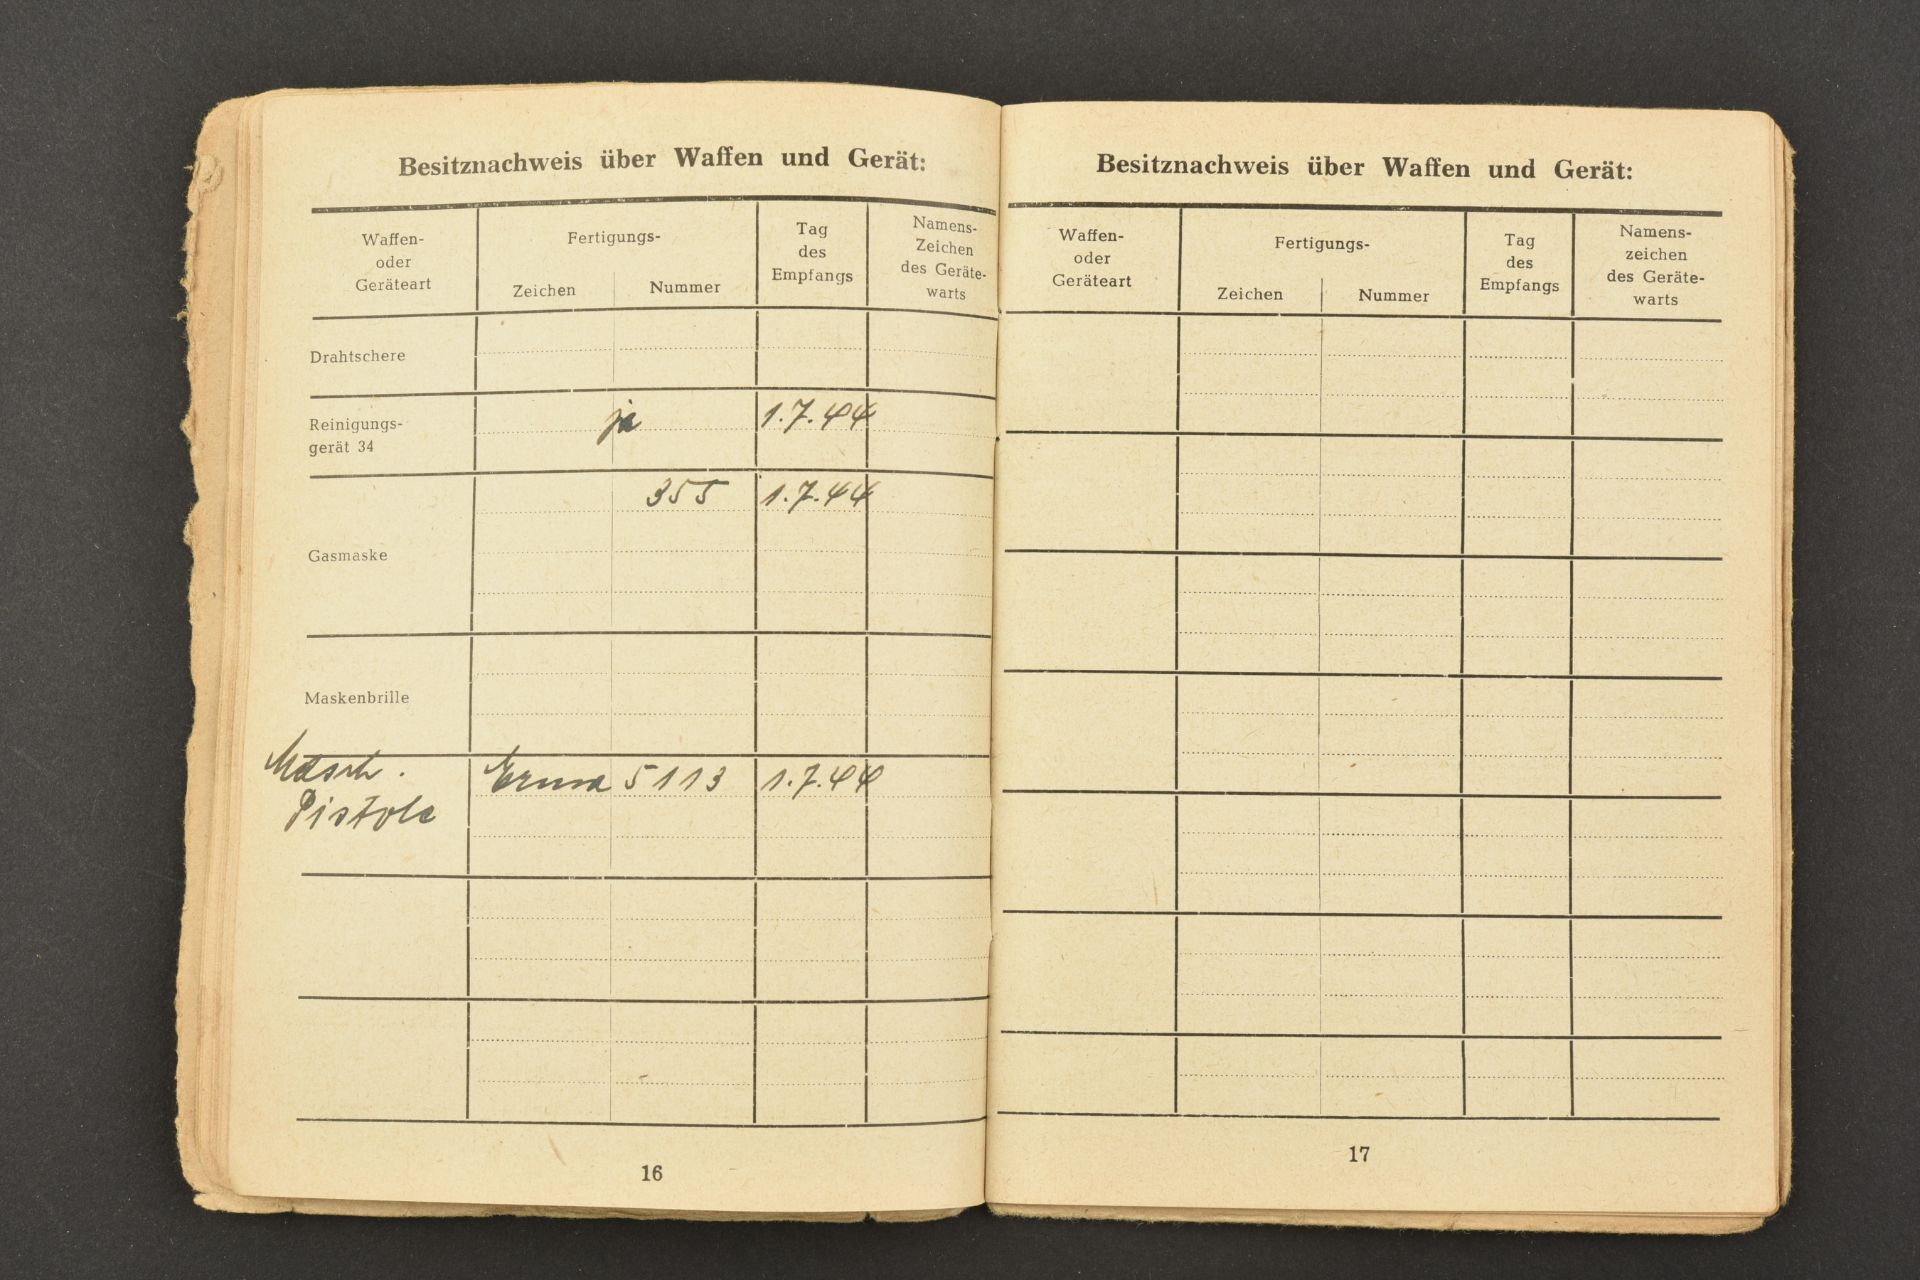 Besitznachweis über Waffen und Gerät:
Waffen-
oder
Geräteart
Fertigungs-
Zeichen
Nummer
Tag
des
Empfangs
Namens-
Zeichen
des Geräte-
warts
Drahtschere
Reinigungs-
gerät 34
ja
1.7.44
Gasmaske
355
1.7.44
Maskenbrille
Masch.
Pistole
Erma 5113 1.7.44
16
Besitznachweis über Waffen und Gerät:
Waffen-
oder
Geräteart
Fertigungs-
Zeichen
Nummer
Tag
des
Empfangs
Namens-
zeichen
des Geräte-
warts
17